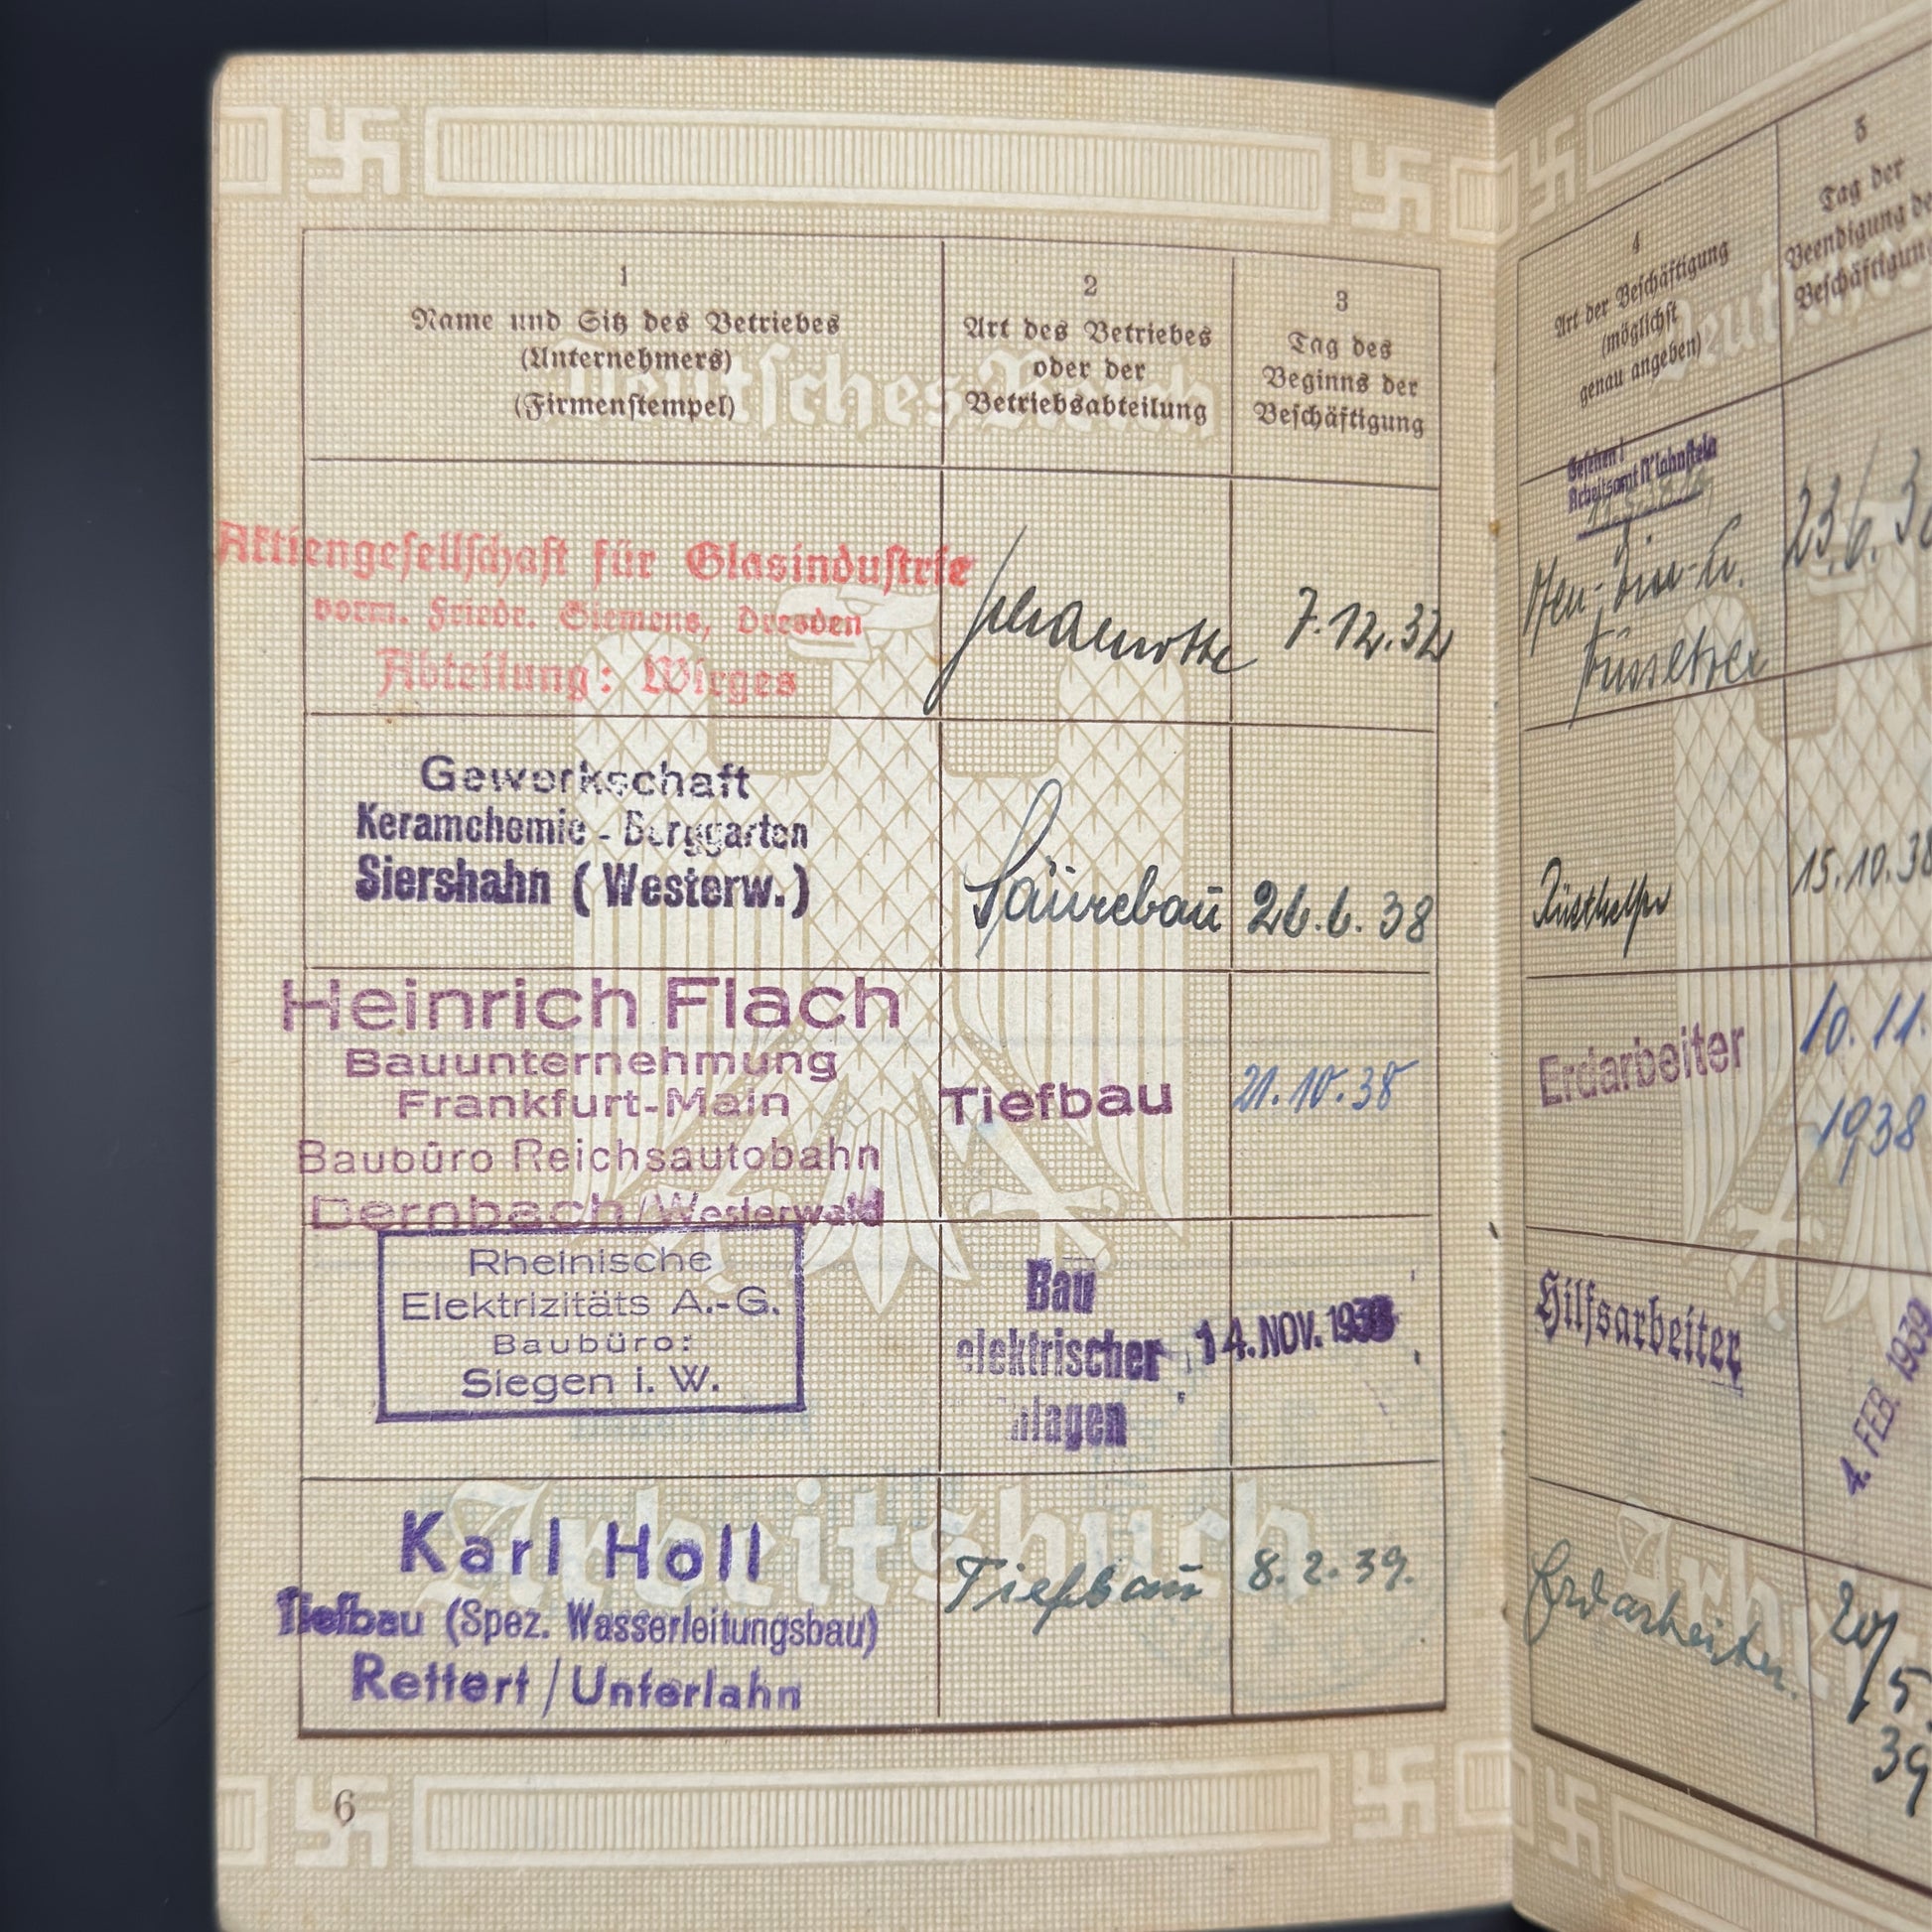 1
Name und Sitz des Betriebes
(Unternehmers)
(Firmenstempel)
2
Art des Betriebes
oder der
Betriebsabteilung
3
Tag des
Beginns der
Beschäftigung
Deutsches Reich
Aktiengesellschaft für Glasindustrie
vorm. Friedr. Siemens, Dresden
Abteilung: Wirges
Schamotte
7.12.32
Gewerkschaft
Keramchemie - Berggarten
Siershahn (Westerw.)
Säurebau
26.6.38
Heinrich Flach
Bauunternehmung
Frankfurt-Main
Baubüro Reichsautobahn
Dernbach/Westerwald
Tiefbau
21.10.38
Rheinische
Elektrizitäts A.-G.
Baubüro:
Siegen i. W.
Bau
elektrischer
14. NOV. 1938
Arbeitsbuch
Karl Holl
Tiefbau (Spez. Wasserleitungsbau)
Rettert / Unterlahn
Tiefbau
8.2.39.
6
4
Art der Beschäftigung
(möglichst
genau angeben)
5
Tag der
Beendigung de
Beschäftigung
Gesehen!
Arbeitsamt N'lahnstein
23.6.3
15.10.38
Erdarbeiter
10.11.
1938
Hilfsarbeiter
4. FEB. 1939
Erdarbeiter.
20/
5.
39